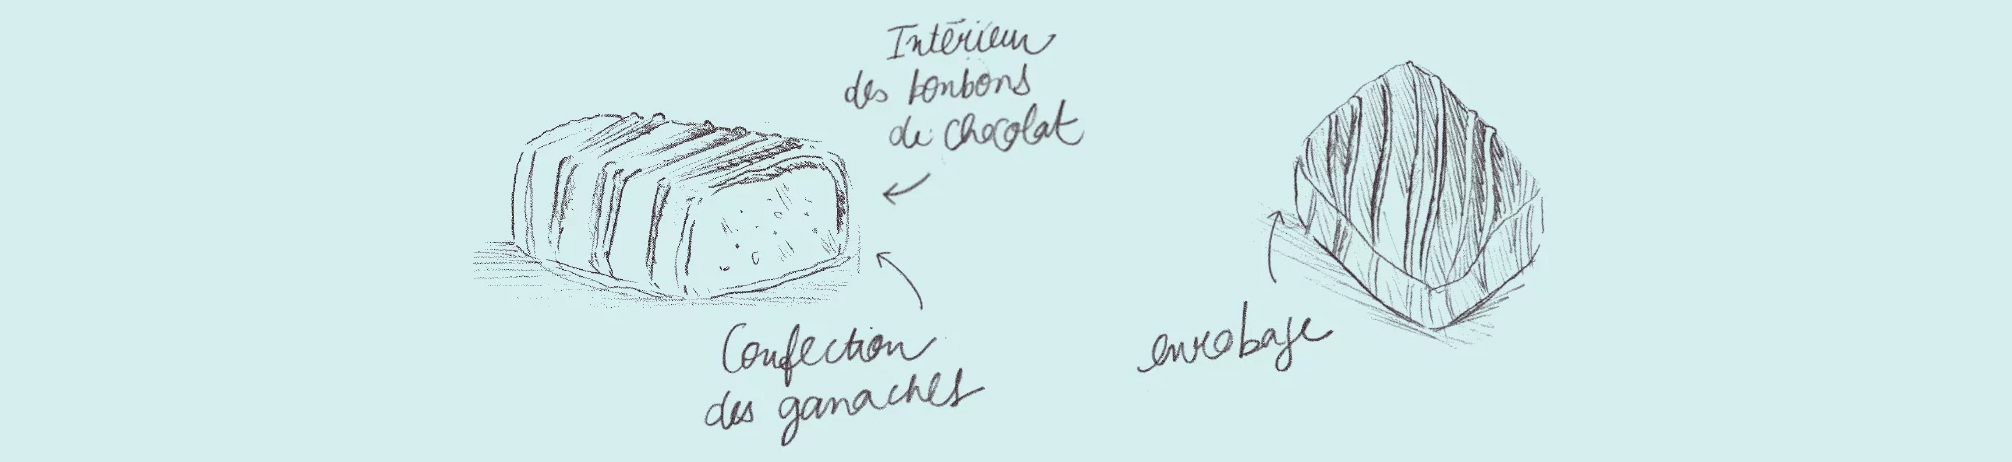 Intérieur
des bonbons
de chocolat
Confection
des ganaches
enrobage